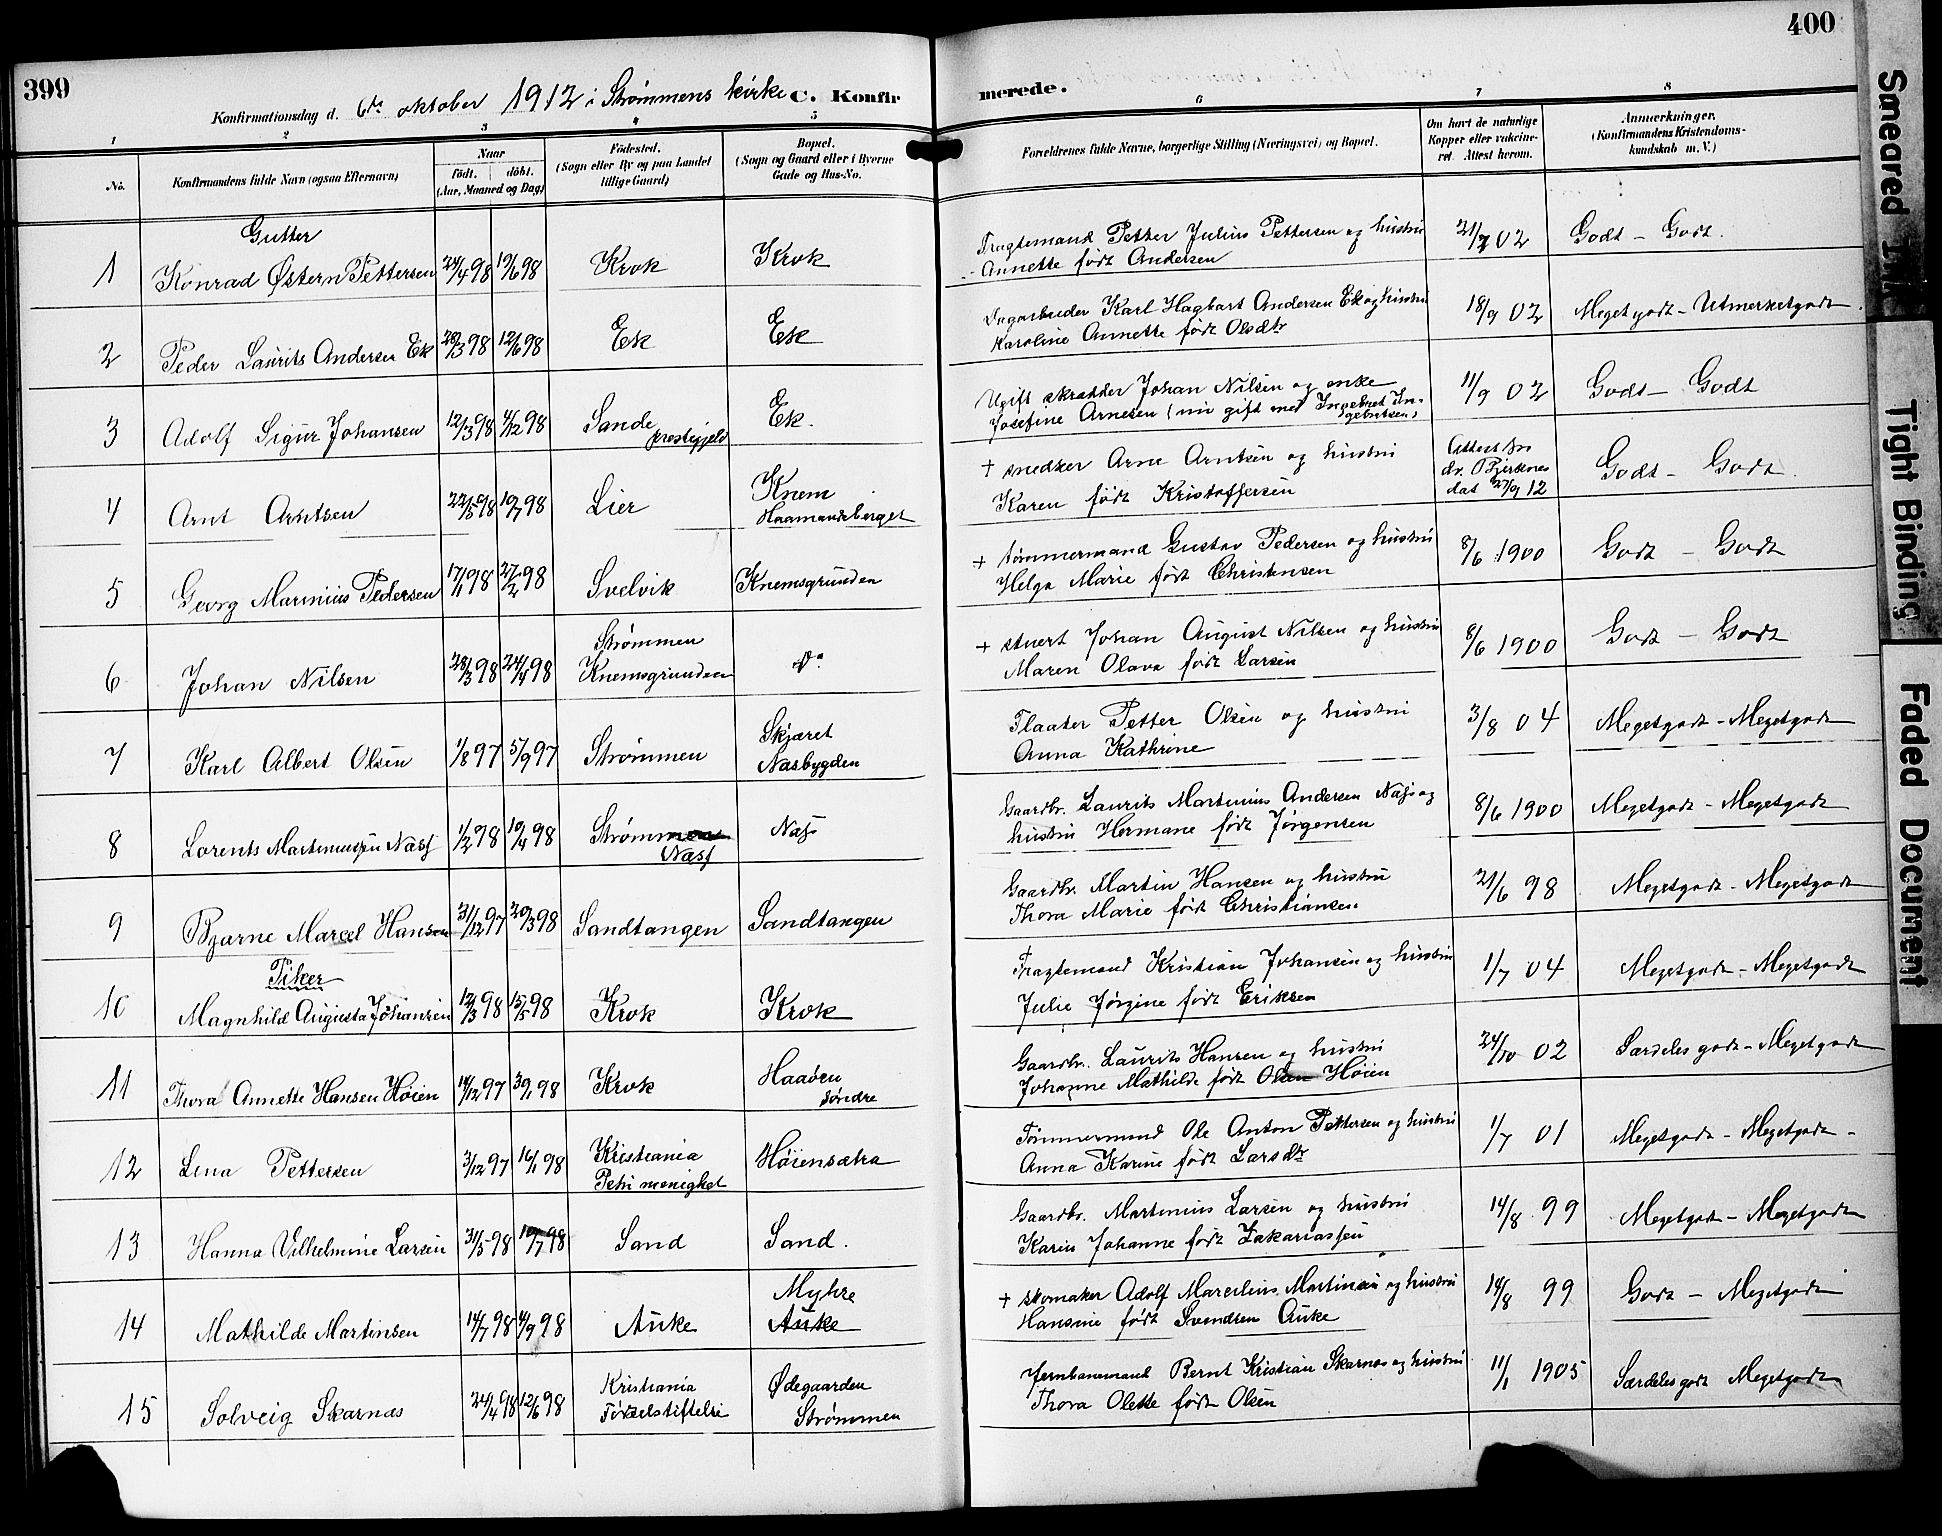 399
400
Konfirmationsdag d. 6te oktober 1912 i Strømmens kirke C. Konfirmerede.
1 2 3 4 5 6 7 8
No.
Konfirmandens fulde Navn (ogsaa Efternavn)
Naar
födt. döbt.
(Aar, Maaned og Dag)
Födested.
(Sogn eller By og paa Landet
tillige Gaard)
Bopæl.
(Sogn og Gaard eller i Byerne
Gade og Hus-No.
Forældrenes fulde Navne, borgerlige Stilling (Næringsvei) og Bopæl.
Om havt de naturlige
Kopper eller vakcine-
ret. Attest herom.
Anmærkninger.
(Konfirmandens Kristendoms-
kundskab m. V.)
Gutter
1 Konrad Østern Pettersen 24/4 98 19/6 98 Krok Krok
Fragtemand Petter Julius Pettersen og hustru
Annette født Andersen
21/7 02 Godt – Godt.
2 Peder Laurits Andersen Ek 28/3 98 12/6 98 Ek Ek
Dagarbeider Karl Hagbart Andersen Ek og hustru
Karoline Annette født Olsdtr
18/9 02 Megetgodt – Utmerketgodt.
3 Adolf Sigur Johansen 12/3 98 4/12 98 Sande prestegjeld Ek.
Ugift skrædder Johan Nilsen og enke
Josefine Arnesen (nu gift med Ingebret In-
gebretsen)
11/9 02 Godt – Godt
4 Arnt Arntsen 22/5 98 10/7 98 Lier Knem
Haamandsberget
+ snedker Arne Arntsen og hustru
Karen født Kristoffersen
Attest fra
dr. Bjerknes
dat 27/9 12
Godt – Godt.
5 Georg Marinius Pedersen 17/1 98 27/2 98 Svelvik Knemsgrunden
+ tømmermand Gustav Pedersen og hustru
Helga Marie født Christensen
8/6 1900 Godt – Godt
6 Johan Nilsen 28/3 98 24/4 98 Strømmen
Knemsgrunden
Do
+ stuert Johan August Nilsen og hustru
Maren Olava født Larsen
8/6 1900 Godt – Godt
7 Karl Albert Olsen 1/8 97 5/9 97 Strømmen Skjæret
Næsbygden
Flaater Petter Olsen og hustru
Anna Kathrine
3/8 04 Megetgodt – Megetgodt
8 Lorents Martinussen Næss 1/2 98 10/4 98 Strømmen
Næss
Næss
Gaardbr. Laurits Martinius Andersen Næss og
hustru Hermane født Jørgensen
8/6 1900 Megetgodt – Megetgodt
9 Bjarne Marcel Hansen 31/12 97 20/3 98 Sandtangen Sandtangen
Gaardbr. Martin Hansen og hustru
Thora Marie født Christiansen
21/6 98 Megetgodt – Megetgodt
Piker
10 Magnhild Augusta Johansen 12/3 98 15/5 98 Krok Krok
Fragtemand Kristian Johansen og hustru
Julie Jørgine født Eriksen
1/7 04 Megetgodt – Megetgodt
11 Thora Annette Hansen Høien 14/12 97 30/1 98 Krok Haaøen
søndre
Gaardbr. Laurits Hansen og hustru
Johanne Mathilde født Olsen Høien
24/10 02 Særdeles godt – Megetgodt
12 Lena Pettersen 3/12 97 16/1 98 Kristiania
Petri menighet
Høiensætra
Tømmermand Ole Anton Pettersen og hustru
Anna Karine født Larsdtr
1/7 01 Megetgodt – Megetgodt –
13 Hanna Vilhelmine Larsen 31/5 98 10/7 98 Sand Sand.
Gaardbr. Martinius Larsen og hustru
Karen Johanne født Zakariassen
14/8 99 Megetgodt – Megetgodt
14 Mathilde Martinsen 14/7 98 4/9 98 Auke Myhre
Auke
+ skomaker Adolf Marcelius Martinsen og hustru
Hansine født Svendsen Auke
14/8 99 Godt – Megetgodt
15 Solveig Skarnæs 24/4 98 12/6 98 Kristiania
Fødselstiftelse
Ødegaarden
Strømmen
Jernbanemand Bernt Kristian Skarnæs og hustru
Thora Olette født Olsen
11/1 1905 Særdelesgodt Megetgodt
Smeared Ink
Tight Binding
Faded Document